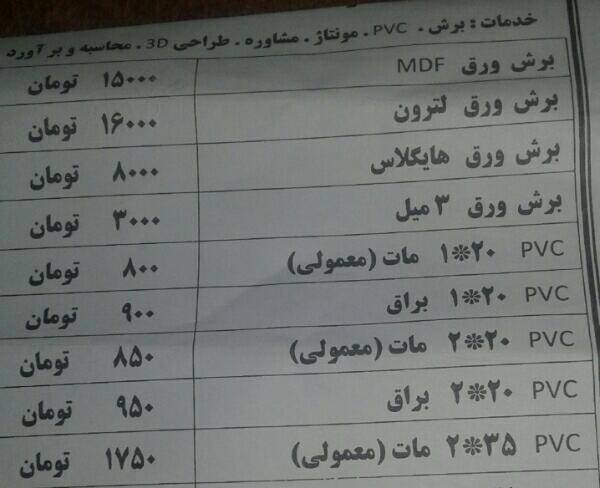 خدمات : برش . PVC . مونتاژ . مشاوره . طراحی 3D . محاسبه و برآورد
برش ورق MDF ۱۵۰۰۰ تومان
برش ورق لترون ۱۶۰۰۰ تومان
برش ورق هایگلاس ۸۰۰۰ تومان
برش ورق ۳ میل ۳۰۰۰ تومان
PVC ۱*۲۰ مات (معمولی) ۸۰۰ تومان
PVC ۱*۲۰ براق ۹۰۰ تومان
PVC ۲*۲۰ مات (معمولی) ۸۵۰ تومان
PVC ۲*۲۰ براق ۹۵۰ تومان
PVC ۲*۳۵ مات (معمولی) ۱۷۵۰ تومان